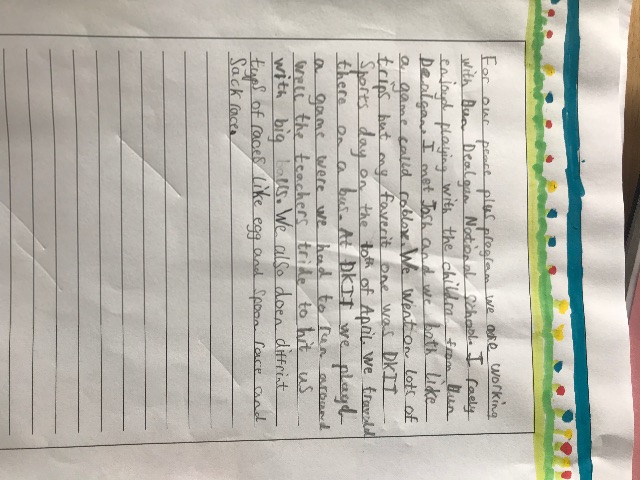 For our peace plus program we are working
with Dun Dealgan National school. I raely
enjoyd playing with the children from Dun
Dealgan. I met Josh and we both like
a game called roblox. We went on lots of
trips but my faverit one was DKIT
Sports day on the of April. We traveld
there on a bus. At DKIT we playd
a game were we had to run around
well the teachers tride to hit us
with big balls. We also doen diffrint
typs of races like egg and spoon race and
Sack race.